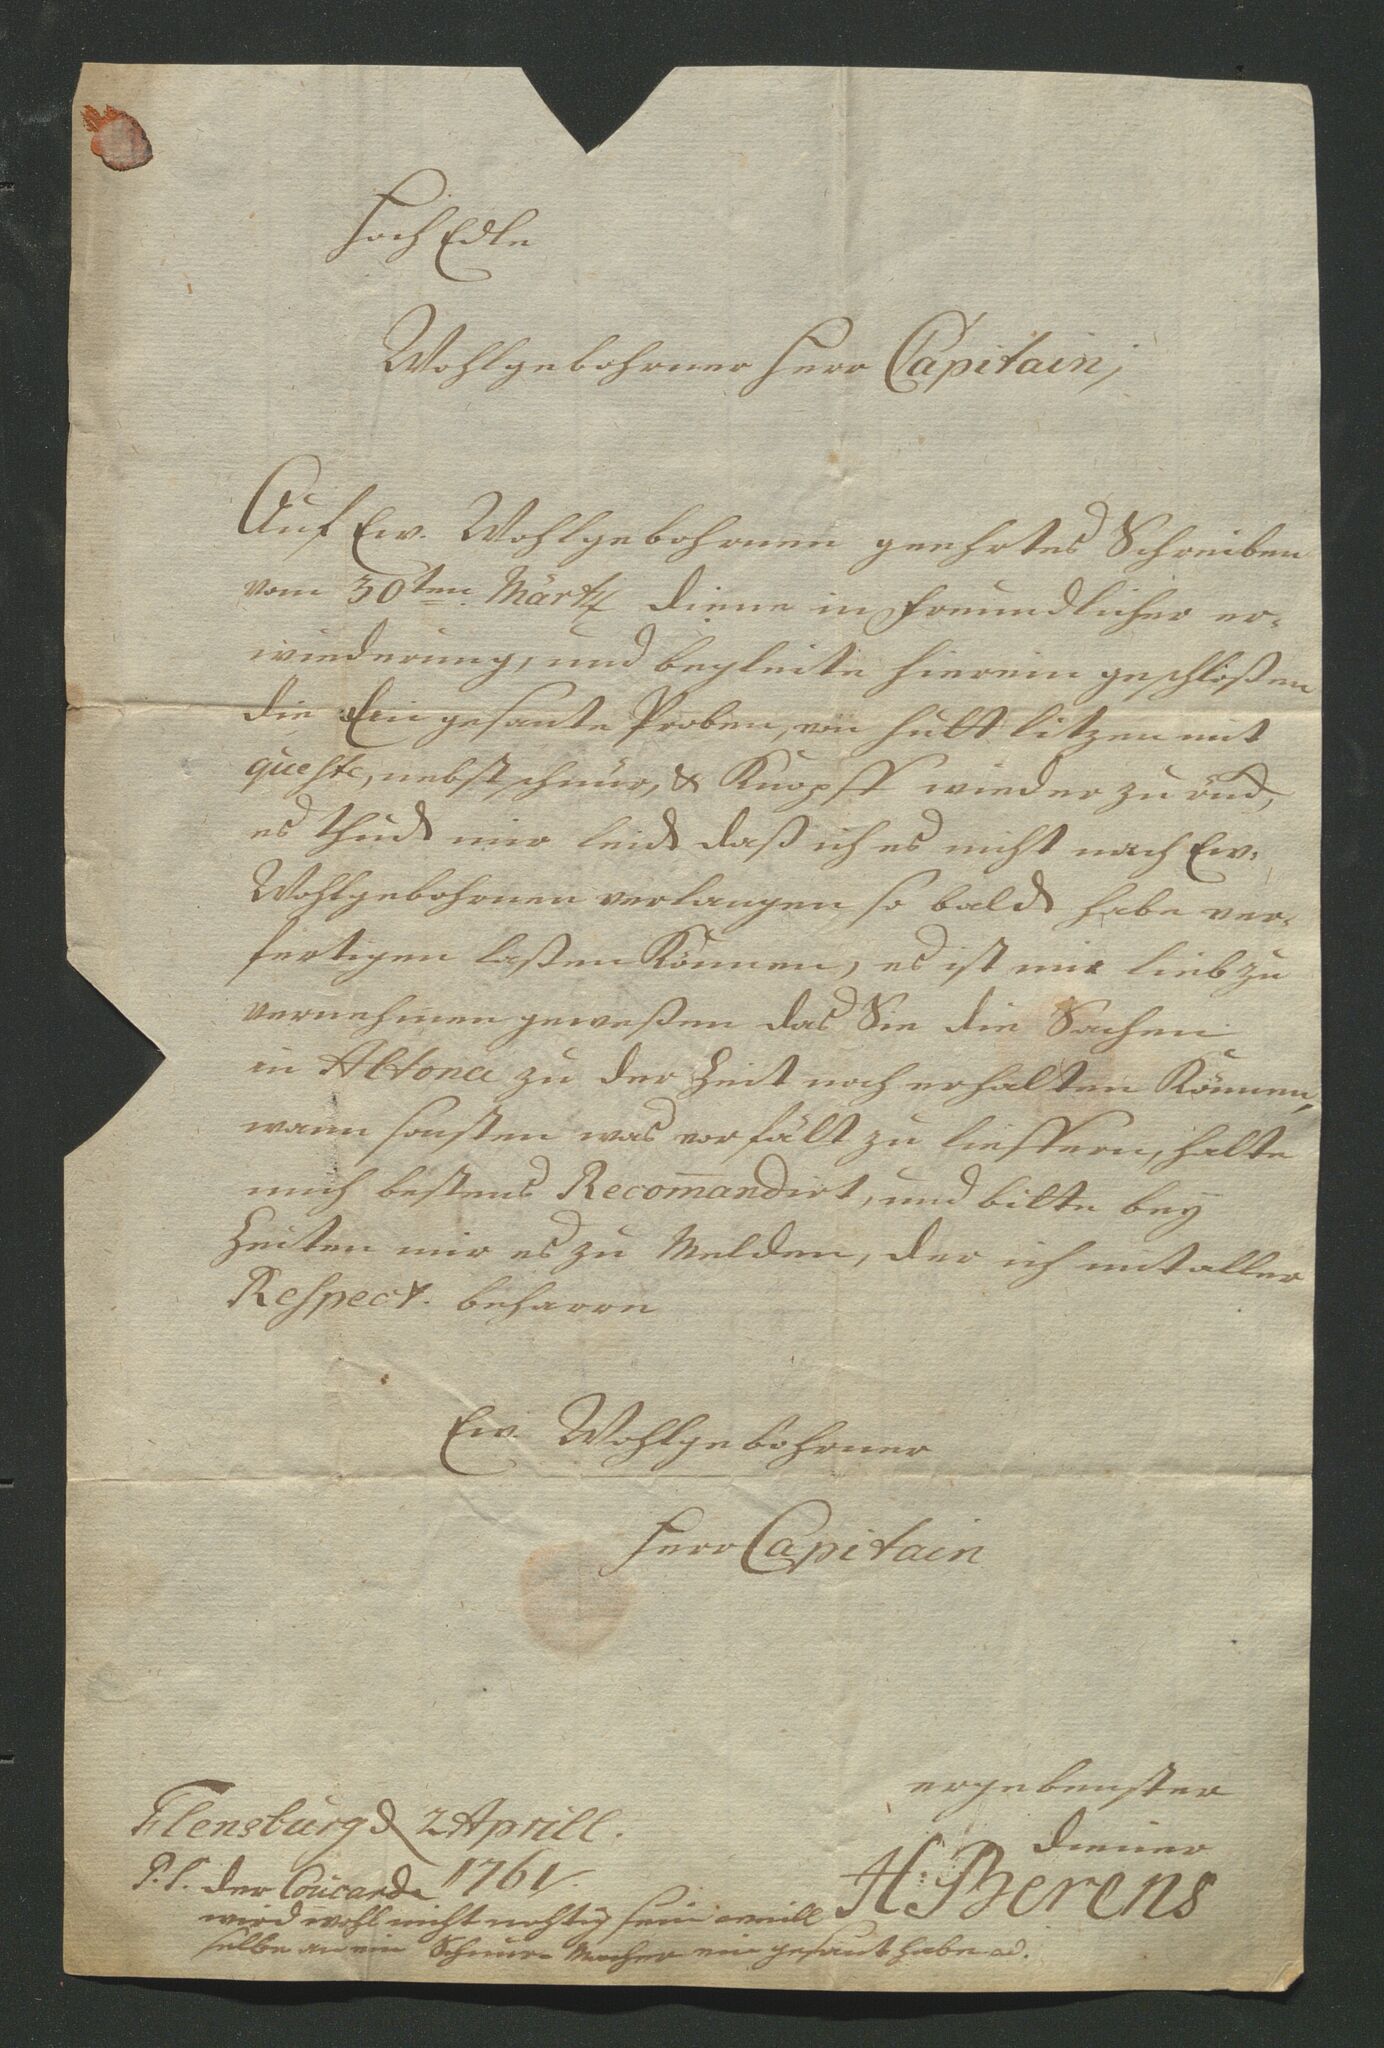 Hoch Edle
Wohlgebohrner Herr Capitain,
Auf Ew. Wohlgebohrnen geehrtes Schreiben
vom 30ten Märtz diene in freundlicher er-
wiederung, und begleite hierein geschloßen
die Ein gesante Proben, von Hutt litzen mit
queste, nebst schnür, & Knopff wieder zu
es thud mir leid daß ich es nicht nach Ew.
Wohlgebohrnen verlangen so bald habe ver-
fertigen laßen Können, es ist mir lieb zu
vernehmen geweßen das Sie die Sachen
in Altona zu der Zeit noch erhalten Können,
wann sonsten was vorfält zu lieffern, halte
mich bestens Recom̅andirt, und bitte beÿ
Zeiten mir es zu Melden, der ich mit aller
Respect. beharre
Ew. Wohlgebohrner
Herr Capitain
ergebenster
Diener
H: Berens
Flensburg d 2 Aprill.
1761.
P.S. der Coucarde
wird wohl nicht nohtig sein weill
selbe an ein Schnur-Macher ein gesant habe